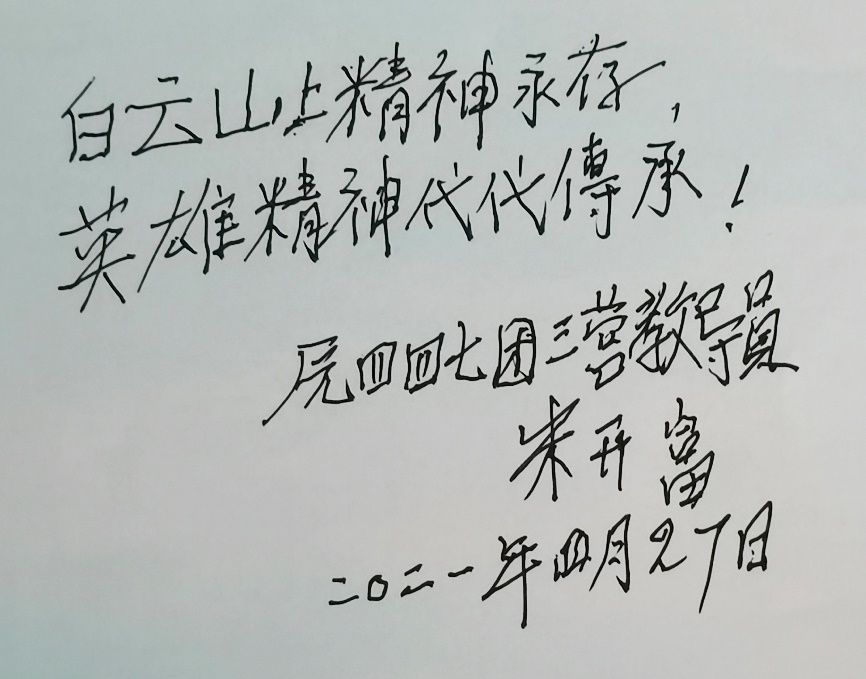 白云山上精神永存,
英雄精神代代傳承!
原四四七团三营教导員
朱开富
二〇二一年四月27日